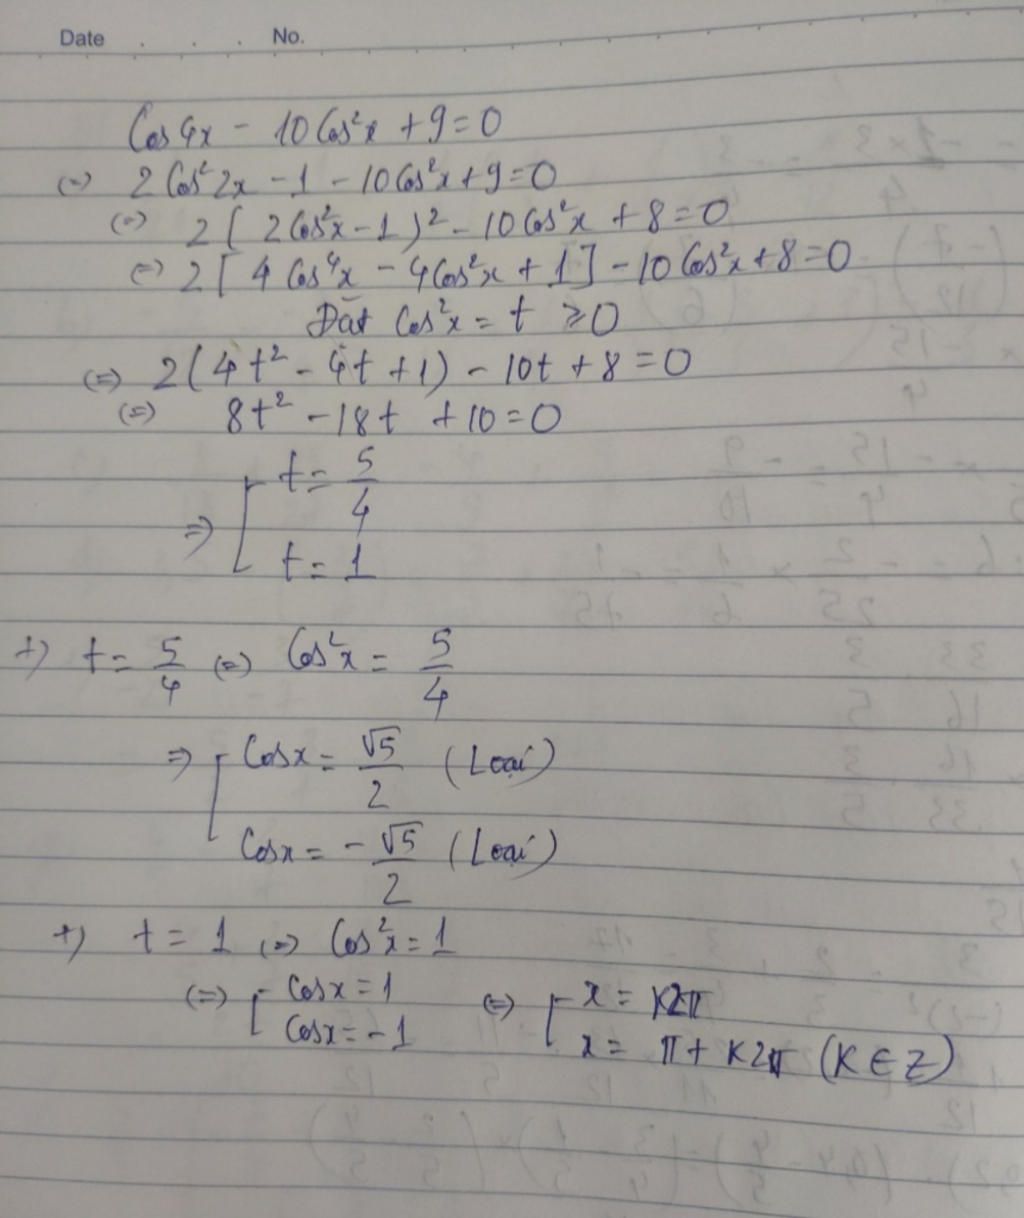 Date . . . No.
Cos4x - 10Cos²x + 9 = 0
(=) 2Cos²2x - 1 - 10Cos²x + 9 = 0
(=) 2[2Cos²x - 1)² - 10Cos²x + 8 = 0
(=) 2[4Cos⁴x - 4Cos²x + 1] - 10Cos²x + 8 = 0
Đặt Cos²x = t ≥ 0
(=) 2(4t² - 4t + 1) - 10t + 8 = 0
(=) 8t² - 18t + 10 = 0
=> [ t = 5/4
t = 1
+) t = 5/4 (=) Cos²x = 5/4
=> [ Cosx = √5/2 (Loại)
Cosx = -√5/2 (Loại)
+) t = 1 (=) Cos²x = 1
(=) [ Cosx = 1 (=) [ x = K2π
Cosx = -1 x = π + K2π (K ∈ Z)